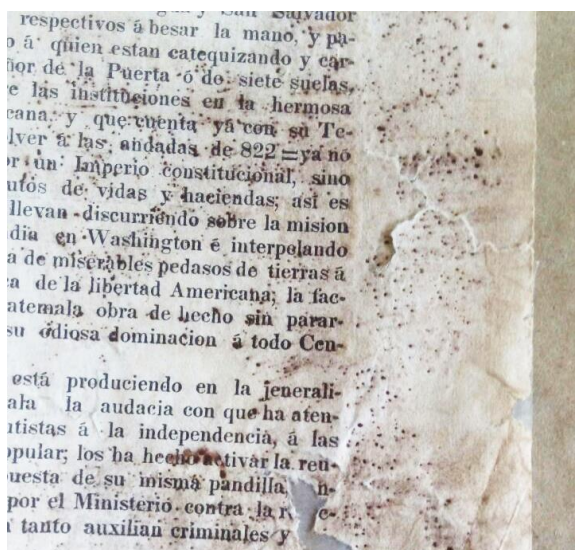 y San Salvador
respectivos á besar la mano, y pa-
o á quien estan catequizando y car-
ñor de la Puerta ó de siete suelas,
e las instituciones en la hermosa
cana y que cuenta yá con su Te-
lver á las andadas de 822 = ya no
or un Imperio constitucional, sino
utos de vidas y haciendas; asi es
llevan discurriendo sobre la mision
dia en Washington é interpolando
a de miserables pedasos de tierras á
a de la libertad Americana; la fac-
atemala obra de hecho sin parar-
su odiosa dominacion á todo Cen-
está produciendo en la jenerali-
ala la audacia con que ha aten-
utistas á la independencia, á las
opular; los ha hecho activar la reu-
uesta de su misma pandilla, n-
por el Ministerio contra la r c-
tanto auxilian criminales y